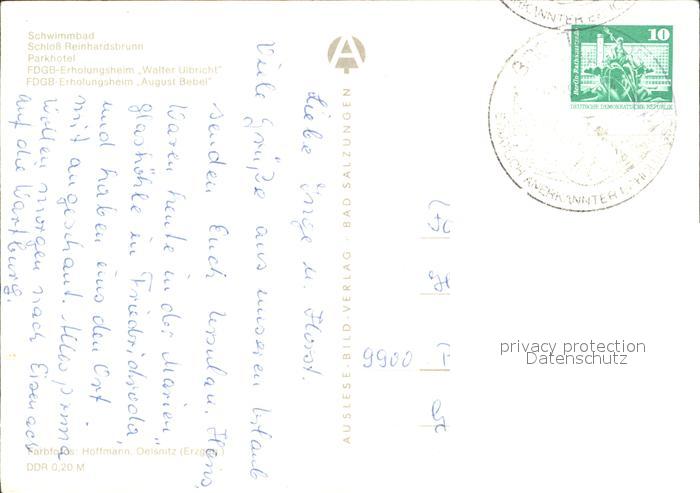 Schwimmbad
Schloß Reinhardsbrunn
Parkhotel
FDGB-Erholungsheim „Walter Ulbricht"
FDGB-Erholungsheim „August Bebel"
Liebe Inge u. Horst.
Viele Grüße aus unseren Urlaub
senden Euch Ursula u. Hans,
Waren heute in der Marien
glashöhle in Friedrichroda,
und haben uns den Ort
mit angeschaut. Alles prima
Wollen morgen nach Eisenach
auf die Wartburg.
Farbfotos: Hoffmann, Oelsnitz (Erzgeb.)
DDR 0,20 M
AUSLESE-BILD-VERLAG · BAD SALZUNGEN
9900
10
Berlin-Rathausstraße
DEUTSCHE DEMOKRATISCHE REPUBLIK
STAATLICH ANERKANNTER
ERKANNTER
privacy protection
Datenschutz